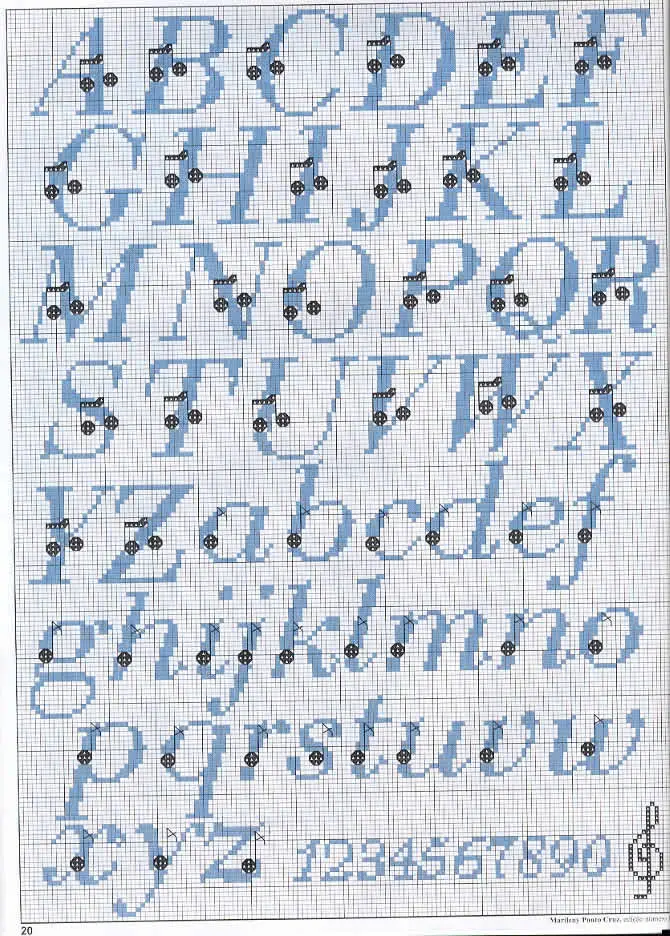 ABCDEF
GHIJKL
MNOPQR
STUVWX
YZabcdef
ghijklmno
pqrstuvw
xyz 1234567890
20
Marileny Ponto Cruz, edição número